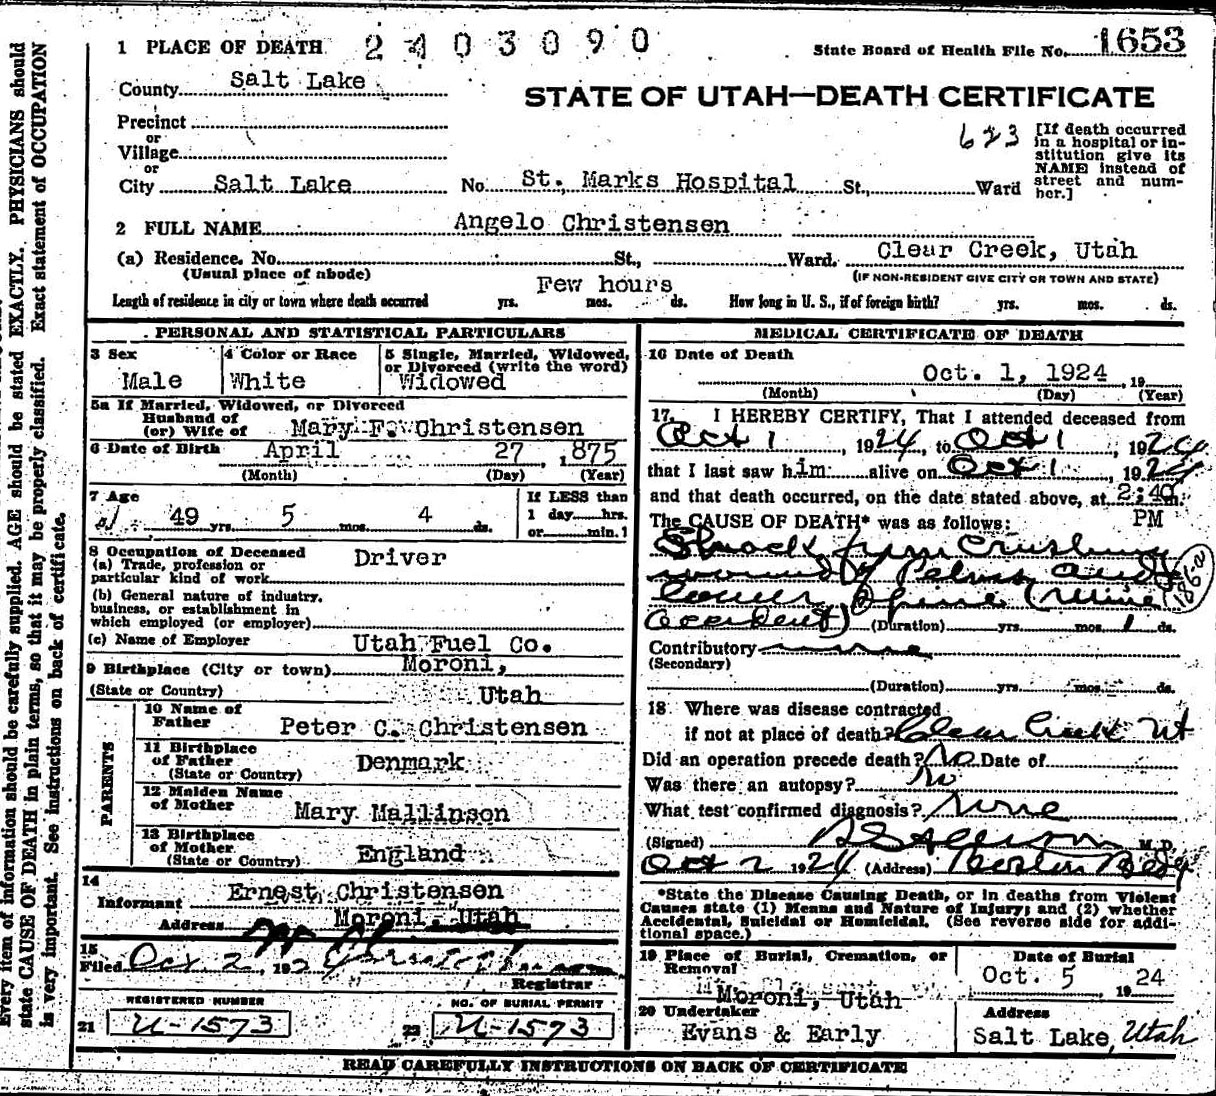 1 PLACE OF DEATH 2403090 State Board of Health File No. 1653
County Salt Lake
STATE OF UTAH—DEATH CERTIFICATE
Precinct
or
Village
or
City Salt Lake No. St. Marks Hospital St., Ward
623
[If death occurred
in a hospital or in-
stitution give its
NAME instead of
street and num-
ber.]
2 FULL NAME Angelo Christensen
(a) Residence. No. St., Ward. Clear Creek, Utah
(Usual place of abode) (IF NON-RESIDENT GIVE CITY OR TOWN AND STATE)
Few hours
Length of residence in city or town where death occurred yrs. mos. ds. How long in U. S., if of foreign birth? yrs. mos. ds.
PERSONAL AND STATISTICAL PARTICULARS
3 Sex
Male
4 Color or Race
White
5 Single, Married, Widowed,
or Divorced (write the word)
Widowed
5a If Married, Widowed, or Divorced
Husband of
(or) Wife of Mary F. Christensen
6 Date of Birth April 27, 1875
(Month) (Day) (Year)
7 Age
49 yrs. 5 mos. 4 ds.
If LESS than
1 day hrs.
or min.
8 Occupation of Deceased
(a) Trade, profession or
particular kind of work Driver
(b) General nature of industry,
business, or establishment in
which employed (or employer)
(c) Name of Employer Utah Fuel Co.
9 Birthplace (City or town) Moroni,
(State or Country) Utah
PARENTS
10 Name of
Father Peter C. Christensen
11 Birthplace
of Father Denmark
(State or Country)
12 Maiden Name
of Mother Mary Mallinson
13 Birthplace
of Mother England
(State or Country)
14
Informant Ernest Christensen
Address Moroni, Utah
15
Filed Oct. 2, 192
Registrar
REGISTERED NUMBER
21 U-1573
NO. OF BURIAL PERMIT
22 U-1573
MEDICAL CERTIFICATE OF DEATH
16 Date of Death
Oct. 1, 1924, 19
(Month) (Day) (Year)
17. I HEREBY CERTIFY, That I attended deceased from
Oct 1, 1924, to Oct 1, 1924
that I last saw him alive on Oct 1, 1924
and that death occurred, on the date stated above, at 2:40 m.
PM
The CAUSE OF DEATH* was as follows:
Shock from Crushing
wound of Pelvis and
lower Spine (Mine
accident)
186-a
(Duration) yrs. mos. 1 ds.
Contributory none
(Secondary)
(Duration) yrs. mos. ds.
18 Where was disease contracted
if not at place of death? Clear Creek Ut
Did an operation precede death? No Date of
Was there an autopsy? No
What test confirmed diagnosis? None
(Signed) M. D.
Oct 2 1924 (Address) Boston Bldg
*State the Disease Causing Death, or in deaths from Violent
Causes state (1) Means and Nature of Injury; and (2) whether
Accidental, Suicidal or Homicidal. (See reverse side for addi-
tional space.)
19 Place of Burial, Cremation, or
Removal
Moroni, Utah
Date of Burial
Oct. 5, 1924
20 Undertaker
Evans & Early
Address
Salt Lake, Utah
READ CAREFULLY INSTRUCTIONS ON BACK OF CERTIFICATE
Every item of information should be carefully supplied. AGE should be stated EXACTLY. PHYSICIANS should
state CAUSE OF DEATH in plain terms, so that it may be properly classified. Exact statement of OCCUPATION
is very important. See instructions on back of certificate.